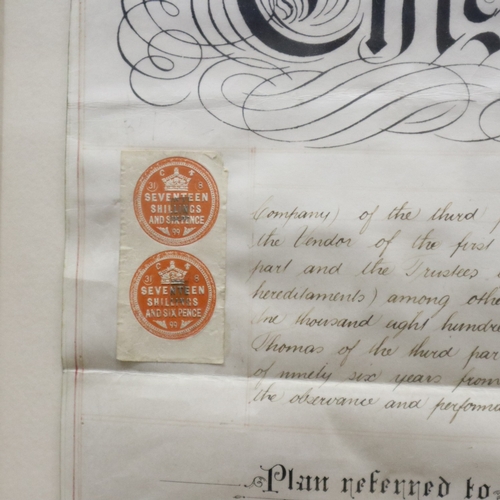 This
C 4
31 8
SEVENTEEN
SHILLINGS
AND SIXPENCE
99
C 4
31 8
SEVENTEEN
SHILLINGS
AND SIXPENCE
99
Company) of the third
the Vendor of the first
part and the Trustees
hereditaments) among othe
One thousand eight hundre
Thomas of the third par
of ninety six years from
the observance and performa
Plan referred to